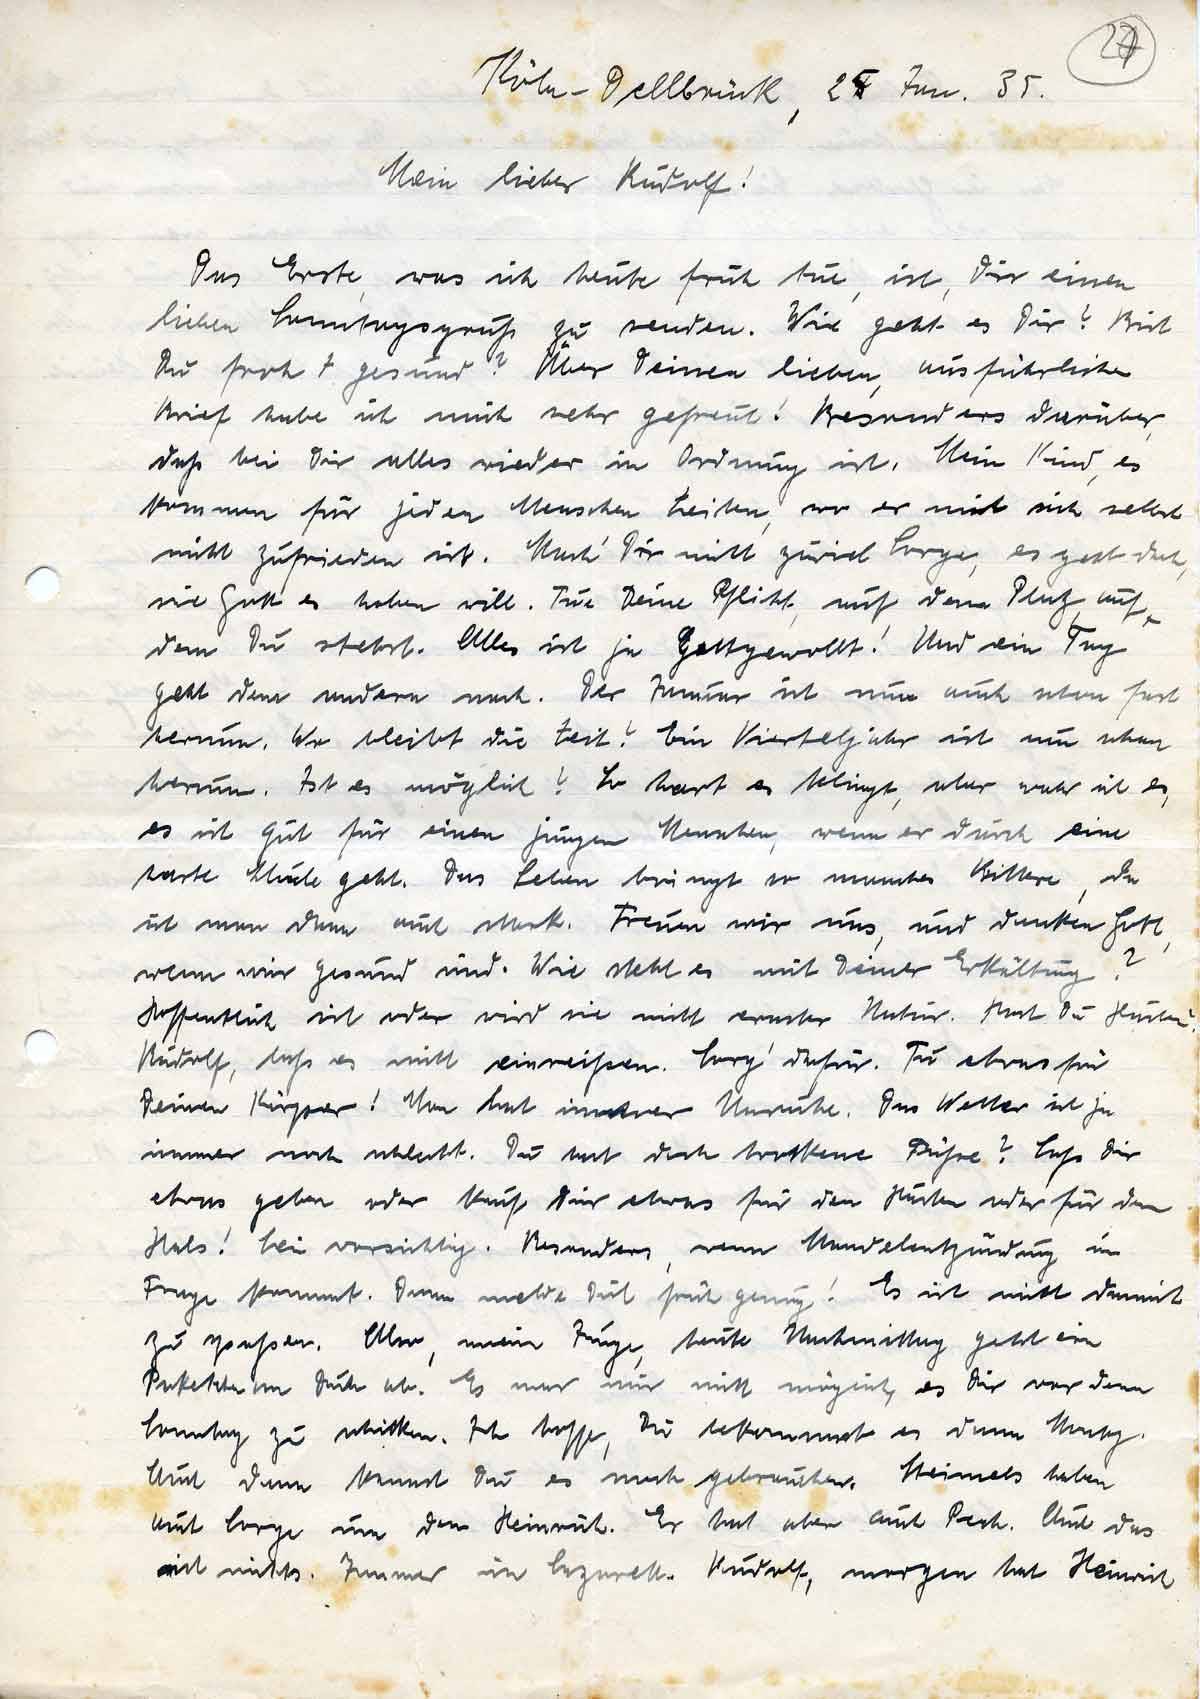 27
Köln-Dellbrück, 27 Jan. 35.
Mein lieber Rudolf!
Das Erste, was ich heute früh tue, ist, Dir einen
lieben Sonntagsgruß zu senden. Wie geht es Dir? Bist
Du froh + gesund? Über Deinen lieben, ausführlichen
Brief habe ich mich sehr gefreut! Besonders darüber,
daß bei Dir alles wieder in Ordnung ist. Mein Kind, es
kommen für jeden Menschen Zeiten, wo er mit sich selbst
nicht zufrieden ist. Mach' Dir nicht zuviel Sorge, es geht doch,
wie Gott es haben will. Tue Deine Pflicht, auf dem Platz, auf
dem Du stehst. Alles ist ja Gottgewollt! Und ein Tag
geht dem andern nach. Der Januar ist nun auch schon fast
herum. Wo bleibt die Zeit? Ein Vierteljahr ist nun schon
herum. Ist es möglich? So hart es klingt, aber wahr ist es,
es ist gut für einen jungen Menschen, wenn er durch eine
harte Schule geht. Das Leben bringt so manches Bittere, da
ist man dann auch stark. Freuen wir uns, und danken Gott,
wenn wir gesund sind. Wie steht es mit Deiner Erkältung?
Hoffentlich ist oder wird sie nicht ernster Natur. Hast Du Husten?
Rudolf, laß es nicht einreißen. Sorg' dafür. Tu etwas für
Deinen Körper! Man hat immer Unruhe. Das Wetter ist ja
immer noch schlecht. Du hast doch trockene Füße? Laß Dir
etwas geben oder kauf Dir etwas für den Husten oder für den
Hals! Sei vorsichtig. Besonders, wenn Mandelentzündung in
Frage kommt. Dann melde Dich früh genug! Es ist nicht damit
zu spaßen. Also, mein Junge, heute Nachmittag geht ein
Paketchen an Dich ab. Es war mir nicht möglich, es Dir vor dem
Sonntag zu schicken. Ich hoffe, Du bekommst es dann Montag.
Auch dann kannst Du es noch gebrauchen. Steimels haben
auch Sorge um den Heinrich. Er hat aber auch Pech. Auch das
ist nichts. Immer im Lazarett. Rudolf, morgen hat Heinrich